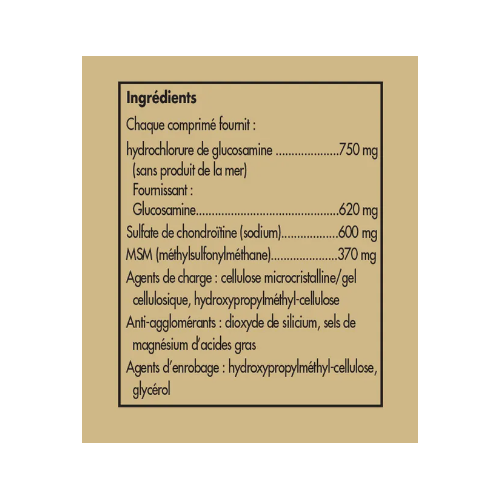 Ingrédients
Chaque comprimé fournit :
hydrochlorure de glucosamine ....................750 mg
(sans produit de la mer)
Fournissant :
Glucosamine..............................................620 mg
Sulfate de chondroïtine (sodium)..................600 mg
MSM (méthylsulfonylméthane).....................370 mg
Agents de charge : cellulose microcristalline/gel
cellulosique, hydroxypropylméthyl-cellulose
Anti-agglomérants : dioxyde de silicium, sels de
magnésium d’acides gras
Agents d’enrobage : hydroxypropylméthyl-cellulose,
glycérol